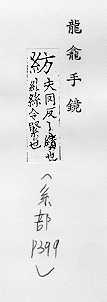 龍龕手鏡
紡
夫冈反績也
絲令緊也
(糸部 P399)